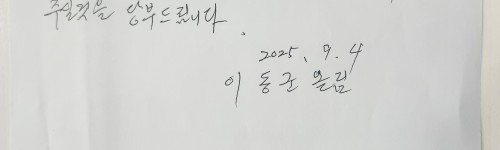 주실것을 당부드립니다.
2025. 9. 4
이 동군 올림